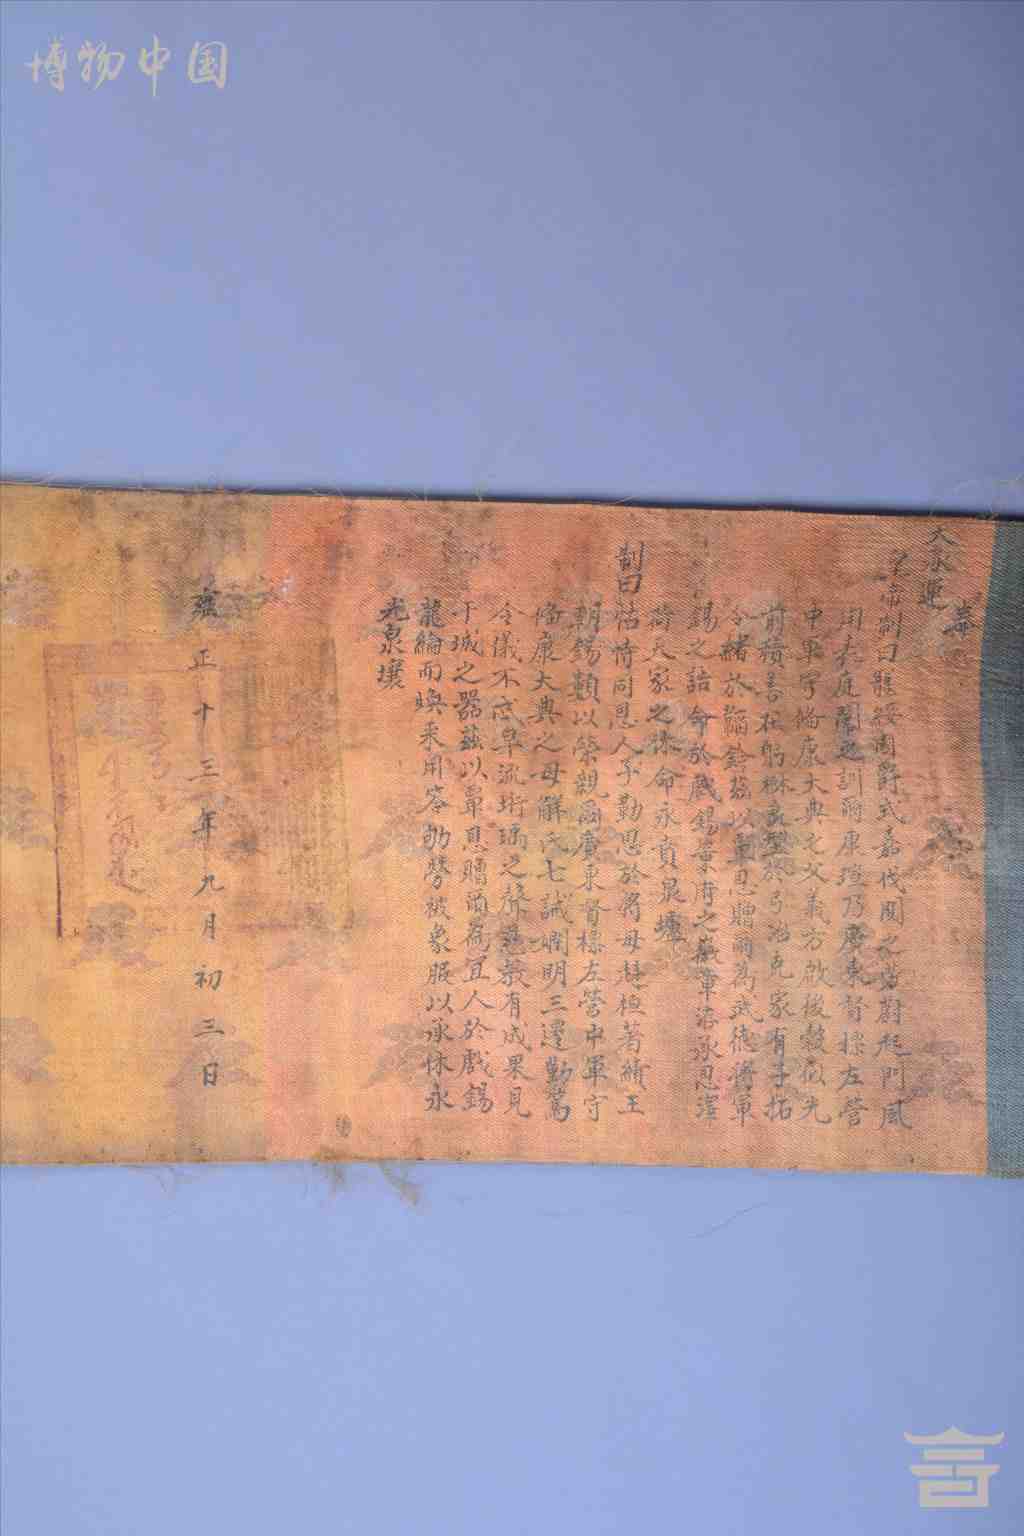 博物中国
奉
天承運
皇帝制曰龍綏國爵式嘉伐閱之勞蔚起門風
用表庭闈之訓爾康瑄乃廣東督標左營
中軍守備康大典之父義方啟後穀似光
前積善在躬樹良型於弓冶克家有子拓
令緒於韜鈐茲以覃恩贈爾為武德將軍
錫之誥命於戲錫策府之徽章洊承恩澤
荷天家之休命永賁泉壚
制曰怙恃同恩人子勤思於將母赳桓著績王
朝錫類以榮親爾廣東督標左營中軍守
備康大典之母解氏七誡嫻明三遷勤篤
令儀不忒早流珩瑀之聲慈教有成果見
干城之器茲以覃恩贈爾為宜人於戲錫
龍綸而煥采用答劬勞被象服以承休永
光泉壤
雍正十三年九月初三日